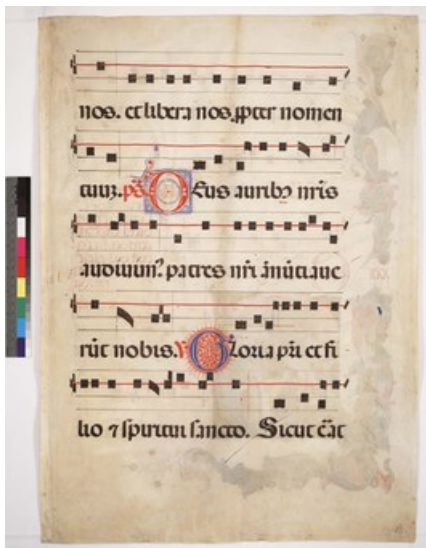 nos. et libera nos ꝓpter nomen
tuuʒ. ps̄ Deus auribꝰ nr̄is
audiuimꝰ patres nr̄i ānūtiaue
rūt nobis. V Gloria pr̄i et fi
lio ⁊ spiritui sancto. Sicut ēat